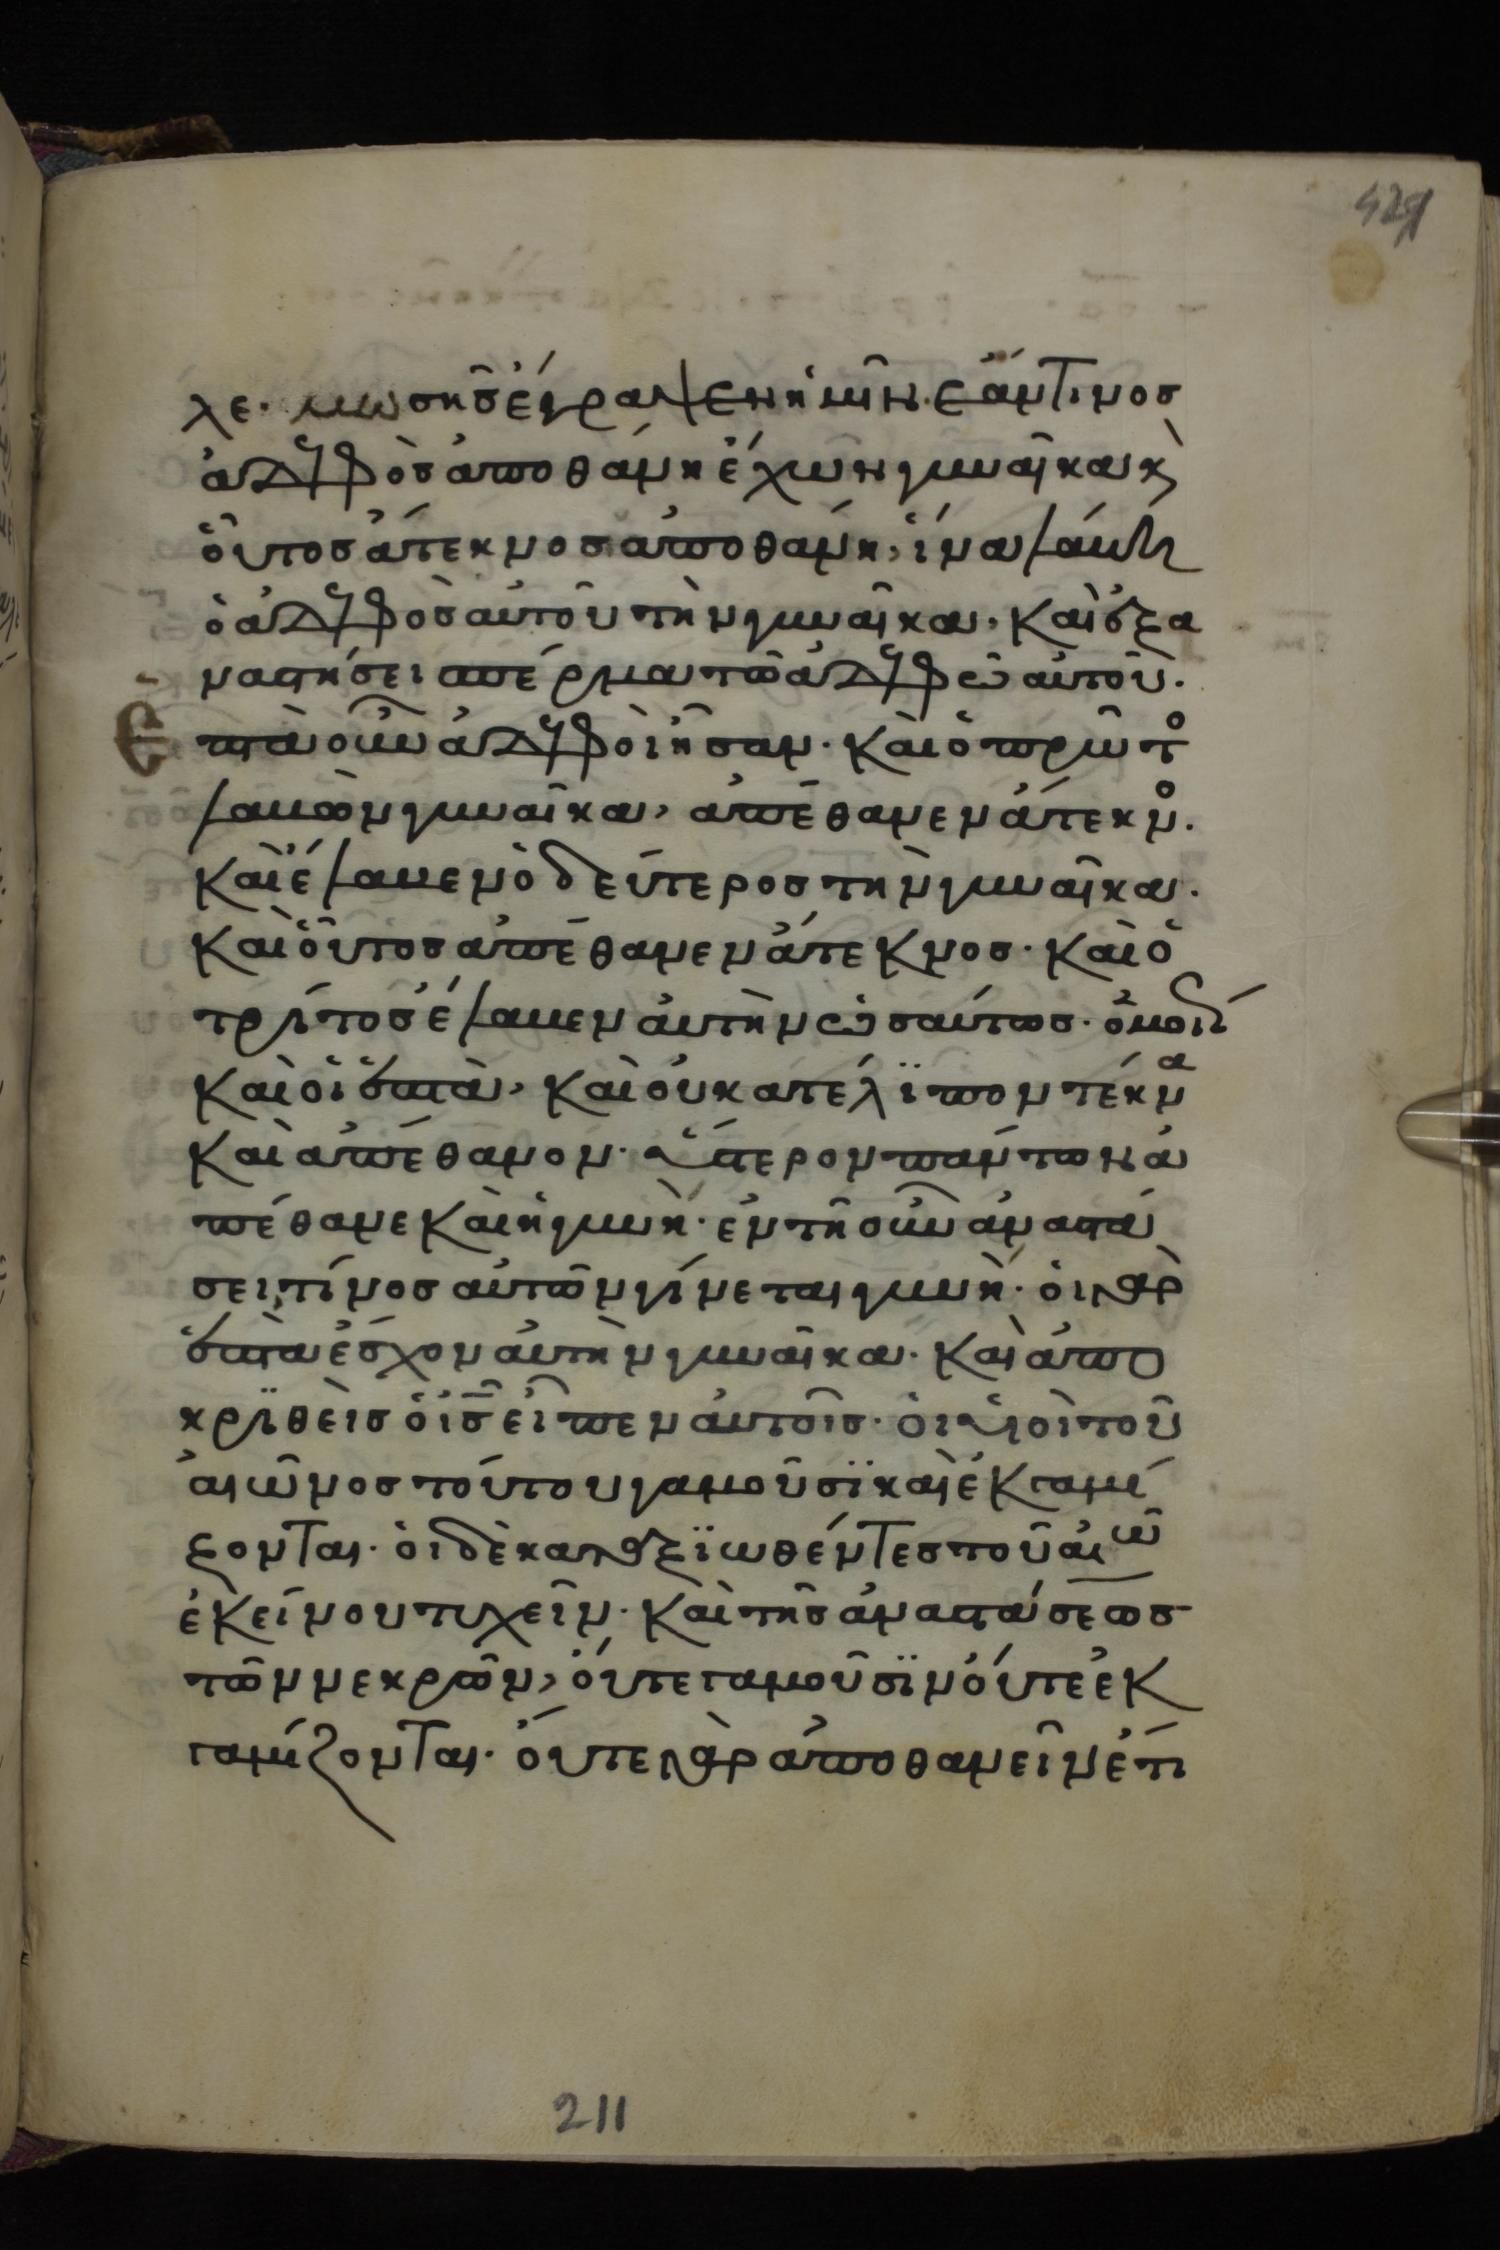 429
λε· μωσῆς ἔγραψεν ἡμῖν· ἐάν τινος
ἀδελφὸς ἀποθάνη ἔχων γυναῖκα κ(αὶ)
οὗτος ἄτεκνος ἀποθάνη, ἵνα λάβη
ὁ ἀδελφὸς αὐτοῦ τὴν γυναῖκα· καὶ ἐξα
ναστήσει σπέρμα τῶ ἀδελφῶ αὐτοῦ·
ἑπτὰ οὖν ἀδελφοὶ ἦσαν· καὶ ὁ πρῶτ(ος)
λαβὼν γυναῖκα, ἀπέθανεν ἄτεκν(ος)·
καὶ ἔλαβεν ὁ δεύτερος τὴν γυναῖκα·
καὶ οὗτος ἀπέθανεν ἄτεκνος· καὶ ὁ
τρίτος ἔλαβεν αὐτὴν ὡσαύτως· ὁμοί
καὶ οἱ ἑπτὰ, καὶ οὐ κατέλϊπον τέκν(α)
καὶ ἀπέθανον· ὕστερον πάντων ἀ
πέθανε καὶ ἡ γυνὴ· ἐν τῆ οὖν ἀναστά
σει, τίνος αὐτῶν γίνεται γυνὴ· οἱ γὰρ
ἑπτὰ ἔσχον αὐτὴν γυναῖκα· καὶ ἀπο
κρϊθεὶς ὁ ι̅ς̅ εἶπεν αὐτοῖς· οἱ υἱοὶ τοῦ
αἰῶνος τούτου γαμοῦσϊ καὶ ἐκγαμί
ζονται· οἱ δὲ καταξϊωθέντες τοῦ αἰῶ
ἐκείνου τυχεῖν· καὶ τῆς ἀναστάσεως
τῶν νεκρῶν, οὔτε γαμοῦσϊν οὔτε ἐκ
γαμίζονται· οὔτε γὰρ ἀποθανεῖν ἔτι
211